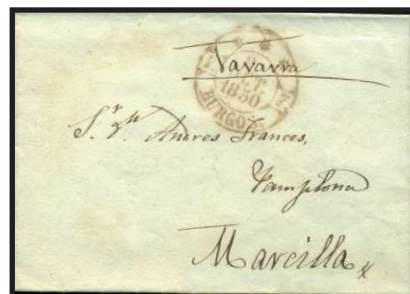 Navarra
1850
BURGOS
Sr. Dn Andres Frances,
Pamplona
Marcilla